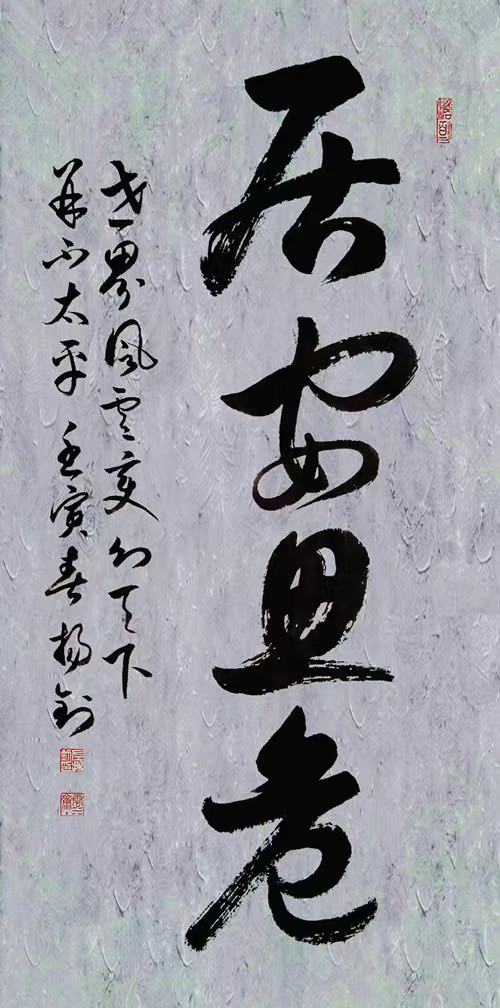 居安思危
世界风云变幻天下
并不太平 壬寅春杨剑